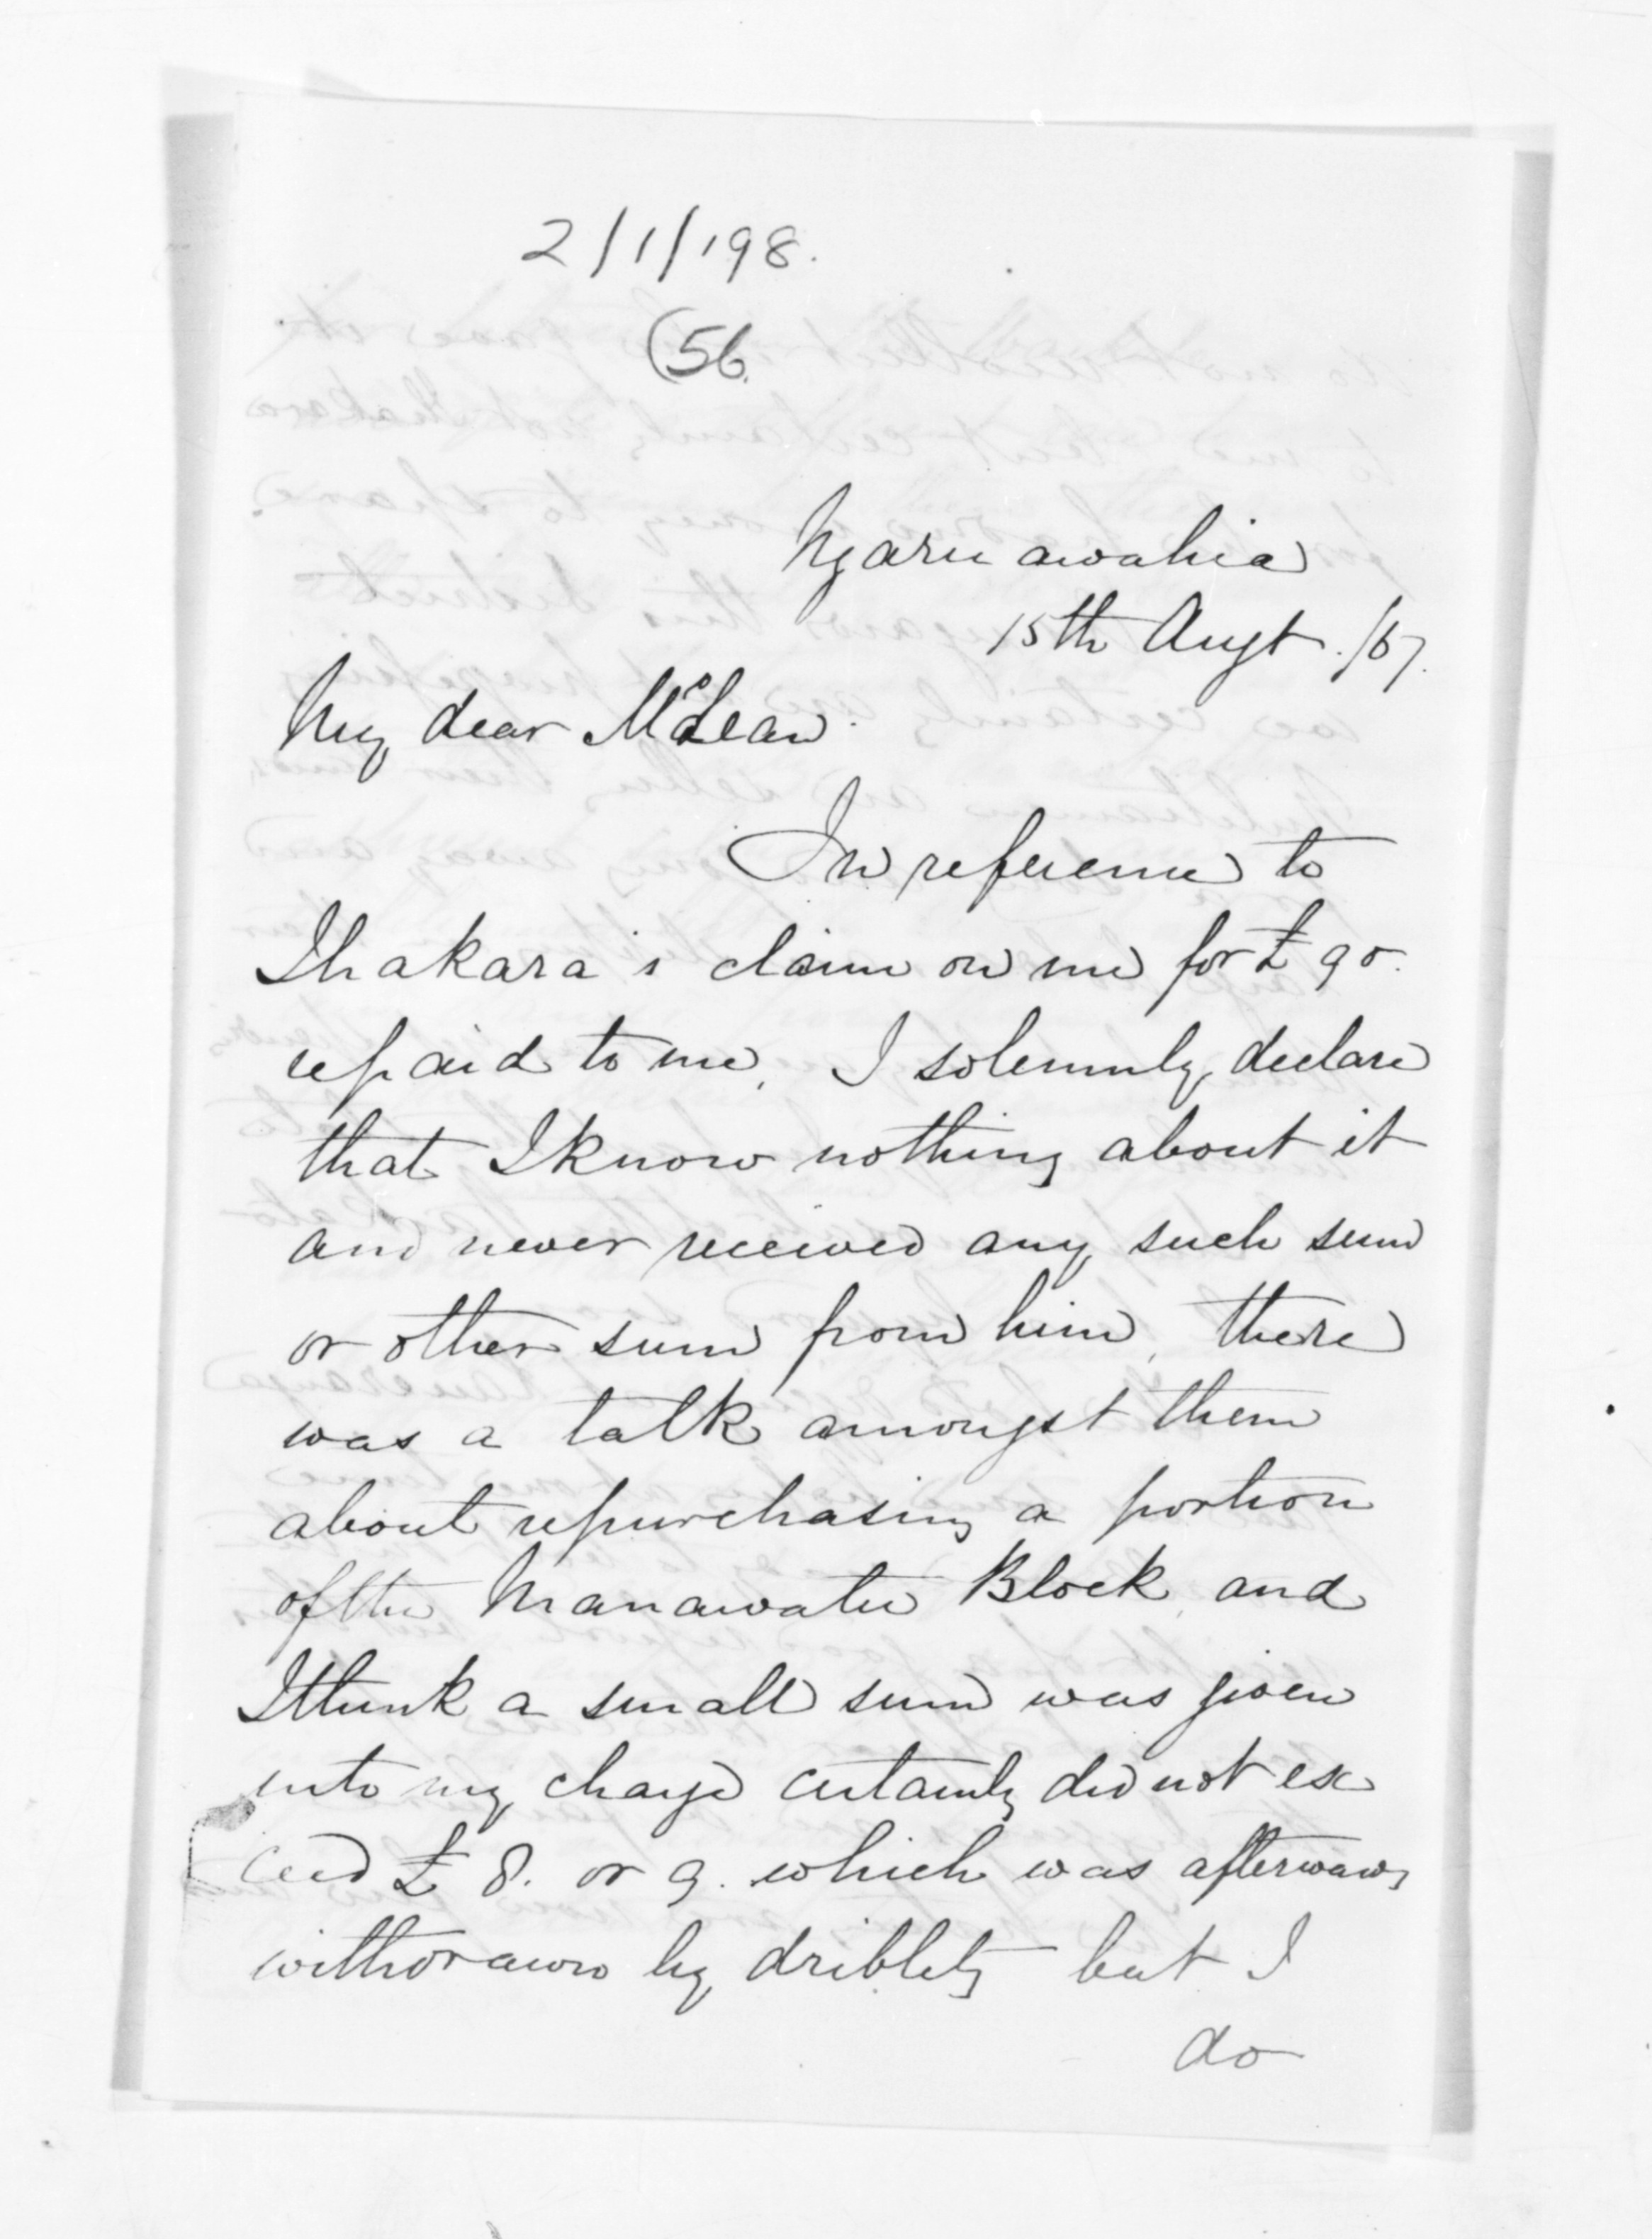 2/1/198.
(56.
Ngaruawahia
15th Augt. /67.
My dear McLean.
In reference to
Ihakara's claim on me for £90.
repaid to me, I solemnly declare
that I know nothing about it
and never received any such sum
or other sum from him, there
was a talk amongst them
about repurchasing a portion
of the Manawatu Block, and
I think a small sum was given
into my charge certainly did not ex
ceed £8. or 9. which was afterwards
withdrawn by driblets but I
do